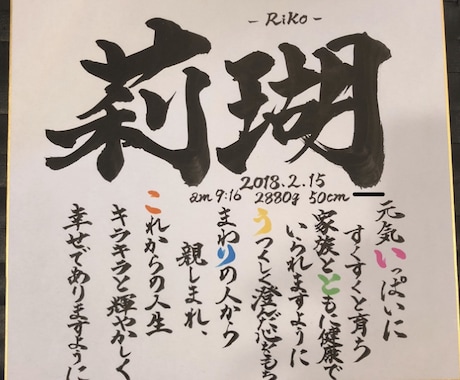 - RiKo -
莉瑚
2018.2.15
am 9:16 2880g 50cm
元気いっぱいに
すくすくと育ち
家族とともに健康で
いられますように
うつくしく澄んだ心をもち
まわりの人から
親しまれ、
これからの人生
キラキラと輝やかしく
幸せでありますように